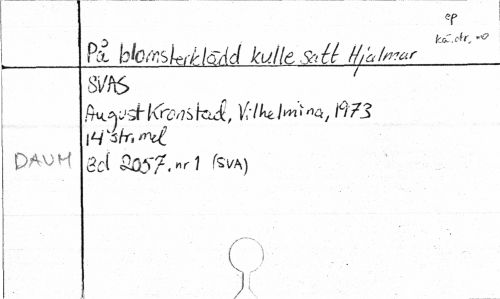 ep
kä. str, no
På blomsterklädd kulle satt Hjalmar
SVAS
August Kronstad, Vilhelmina, 1973
14 str, mel
DAUM Bd 2057. nr 1 (SVA)